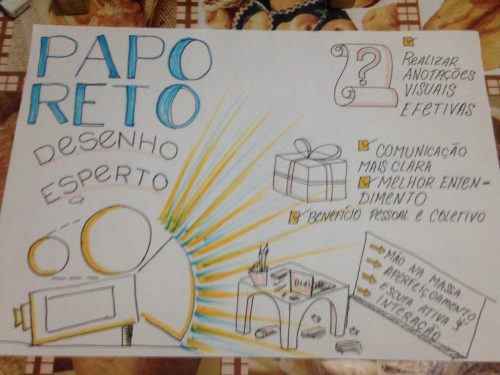 PAPO
RETO
DESENHO
ESPERTO
?
REALIZAR
ANOTAÇÕES
VISUAIS
EFETIVAS
COMUNICAÇÃO
MAIS CLARA
MELHOR ENTEN-
DIMENTO
BENEFÍCIO PESSOAL E COLETIVO
MÃO NA MASSA
APERFEIÇOAMENTO
ESCUTA ATIVA
INTERAÇÃO